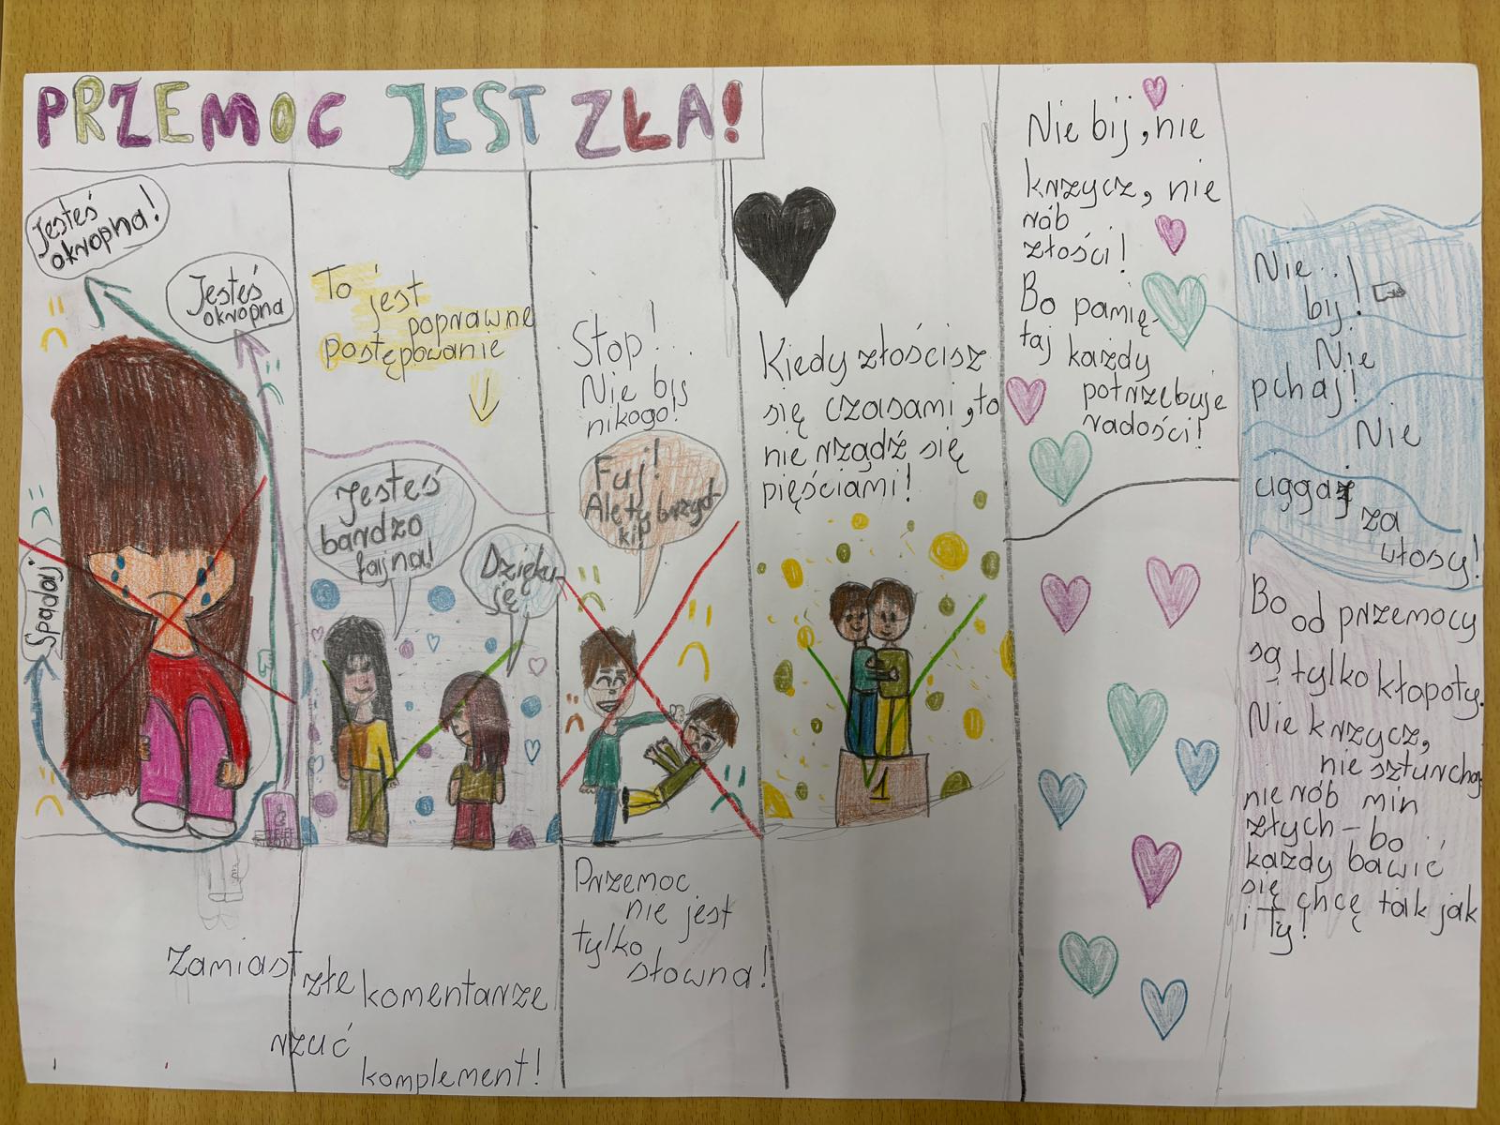 PRZEMOC JEST ZŁA!
Jesteś
okropna!
Jesteś
okropna
Spadaj
To
jest
poprawne
postępowanie
Jesteś
bardzo
fajna!
Dzięku-
ję
Zamiast złe komentarze
rzuć
komplement!
Stop!
Nie bij
nikogo!
Fuj!
Ale ty brzyd-
ki!
Przemoc
nie jest
tylko
słowna!
Kiedy złościsz
się czasami, to
nie rządź się
pięściami!
1
Nie bij, nie
krzycz, nie
rób
złości!
Bo pamię-
taj każdy
potrzebuje
radości!
Nie
bij!
Nie
pchaj!
Nie
ciągaj
za
włosy!
Bo od przemocy
są tylko kłopoty.
Nie krzycz,
nie szturchaj
nie rób min
złych - bo
każdy bawić
się chcę tak jak
i Ty!